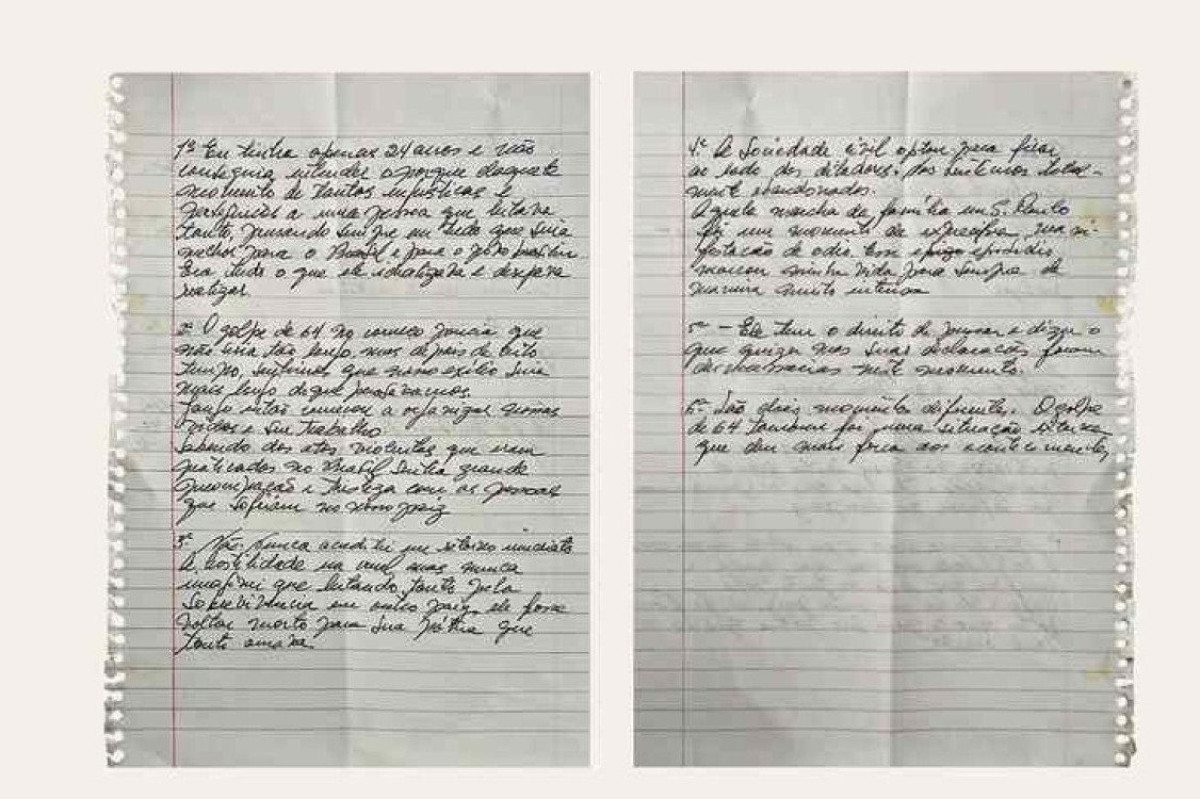 1ª Eu tinha apenas 24 anos e não
conseguia entender o porque daquele
momento de tantas injustiças e
a uma pessoa que lutava
tanto, pensando sempre em tudo que seria
melhor para o Brasil e para o povo brasileiro
Era tudo o que ele idealizava e desejava
realizar
2ª O golpe de 64 no começo parecia que
não seria tão longo, mas depois de certo
tempo, sentimos que nosso exílio seria
mais longo do que pensávamos.
Jango então começou a organizar nossas
vidas e seu trabalho
Sabendo dos atos violentos que eram
praticados no Brasil sentia grande
preocupação e tristeza com as pessoas
que sofriam no nosso paiz
3ª Não. Nunca acreditei um retorno imediato
A hostilidade na mas nunca
imaginei que lutando tanto pela
sobrevivência em outro paiz, ele fosse
voltar morto para sua pátria que
tanto amava.
4ª A Sociedade civil optou para ficar
ao lado dos ditadores. Nos sentimos total-
mente abandonados.
Aquela marcha da família em S. Paulo
foi um momento de mani-
festação de odio. Esse episodio
marcou minha vida para sempre de
maneira muito intensa
5ª - Ele tem o direito de pensar e dizer o
que quizer mas suas declarações foram
desnecessarias neste momento.
6ª São dois momentos diferentes. O golpe
de 64 tambem foi uma situação externa
que deu mais força aos acontecimentos,